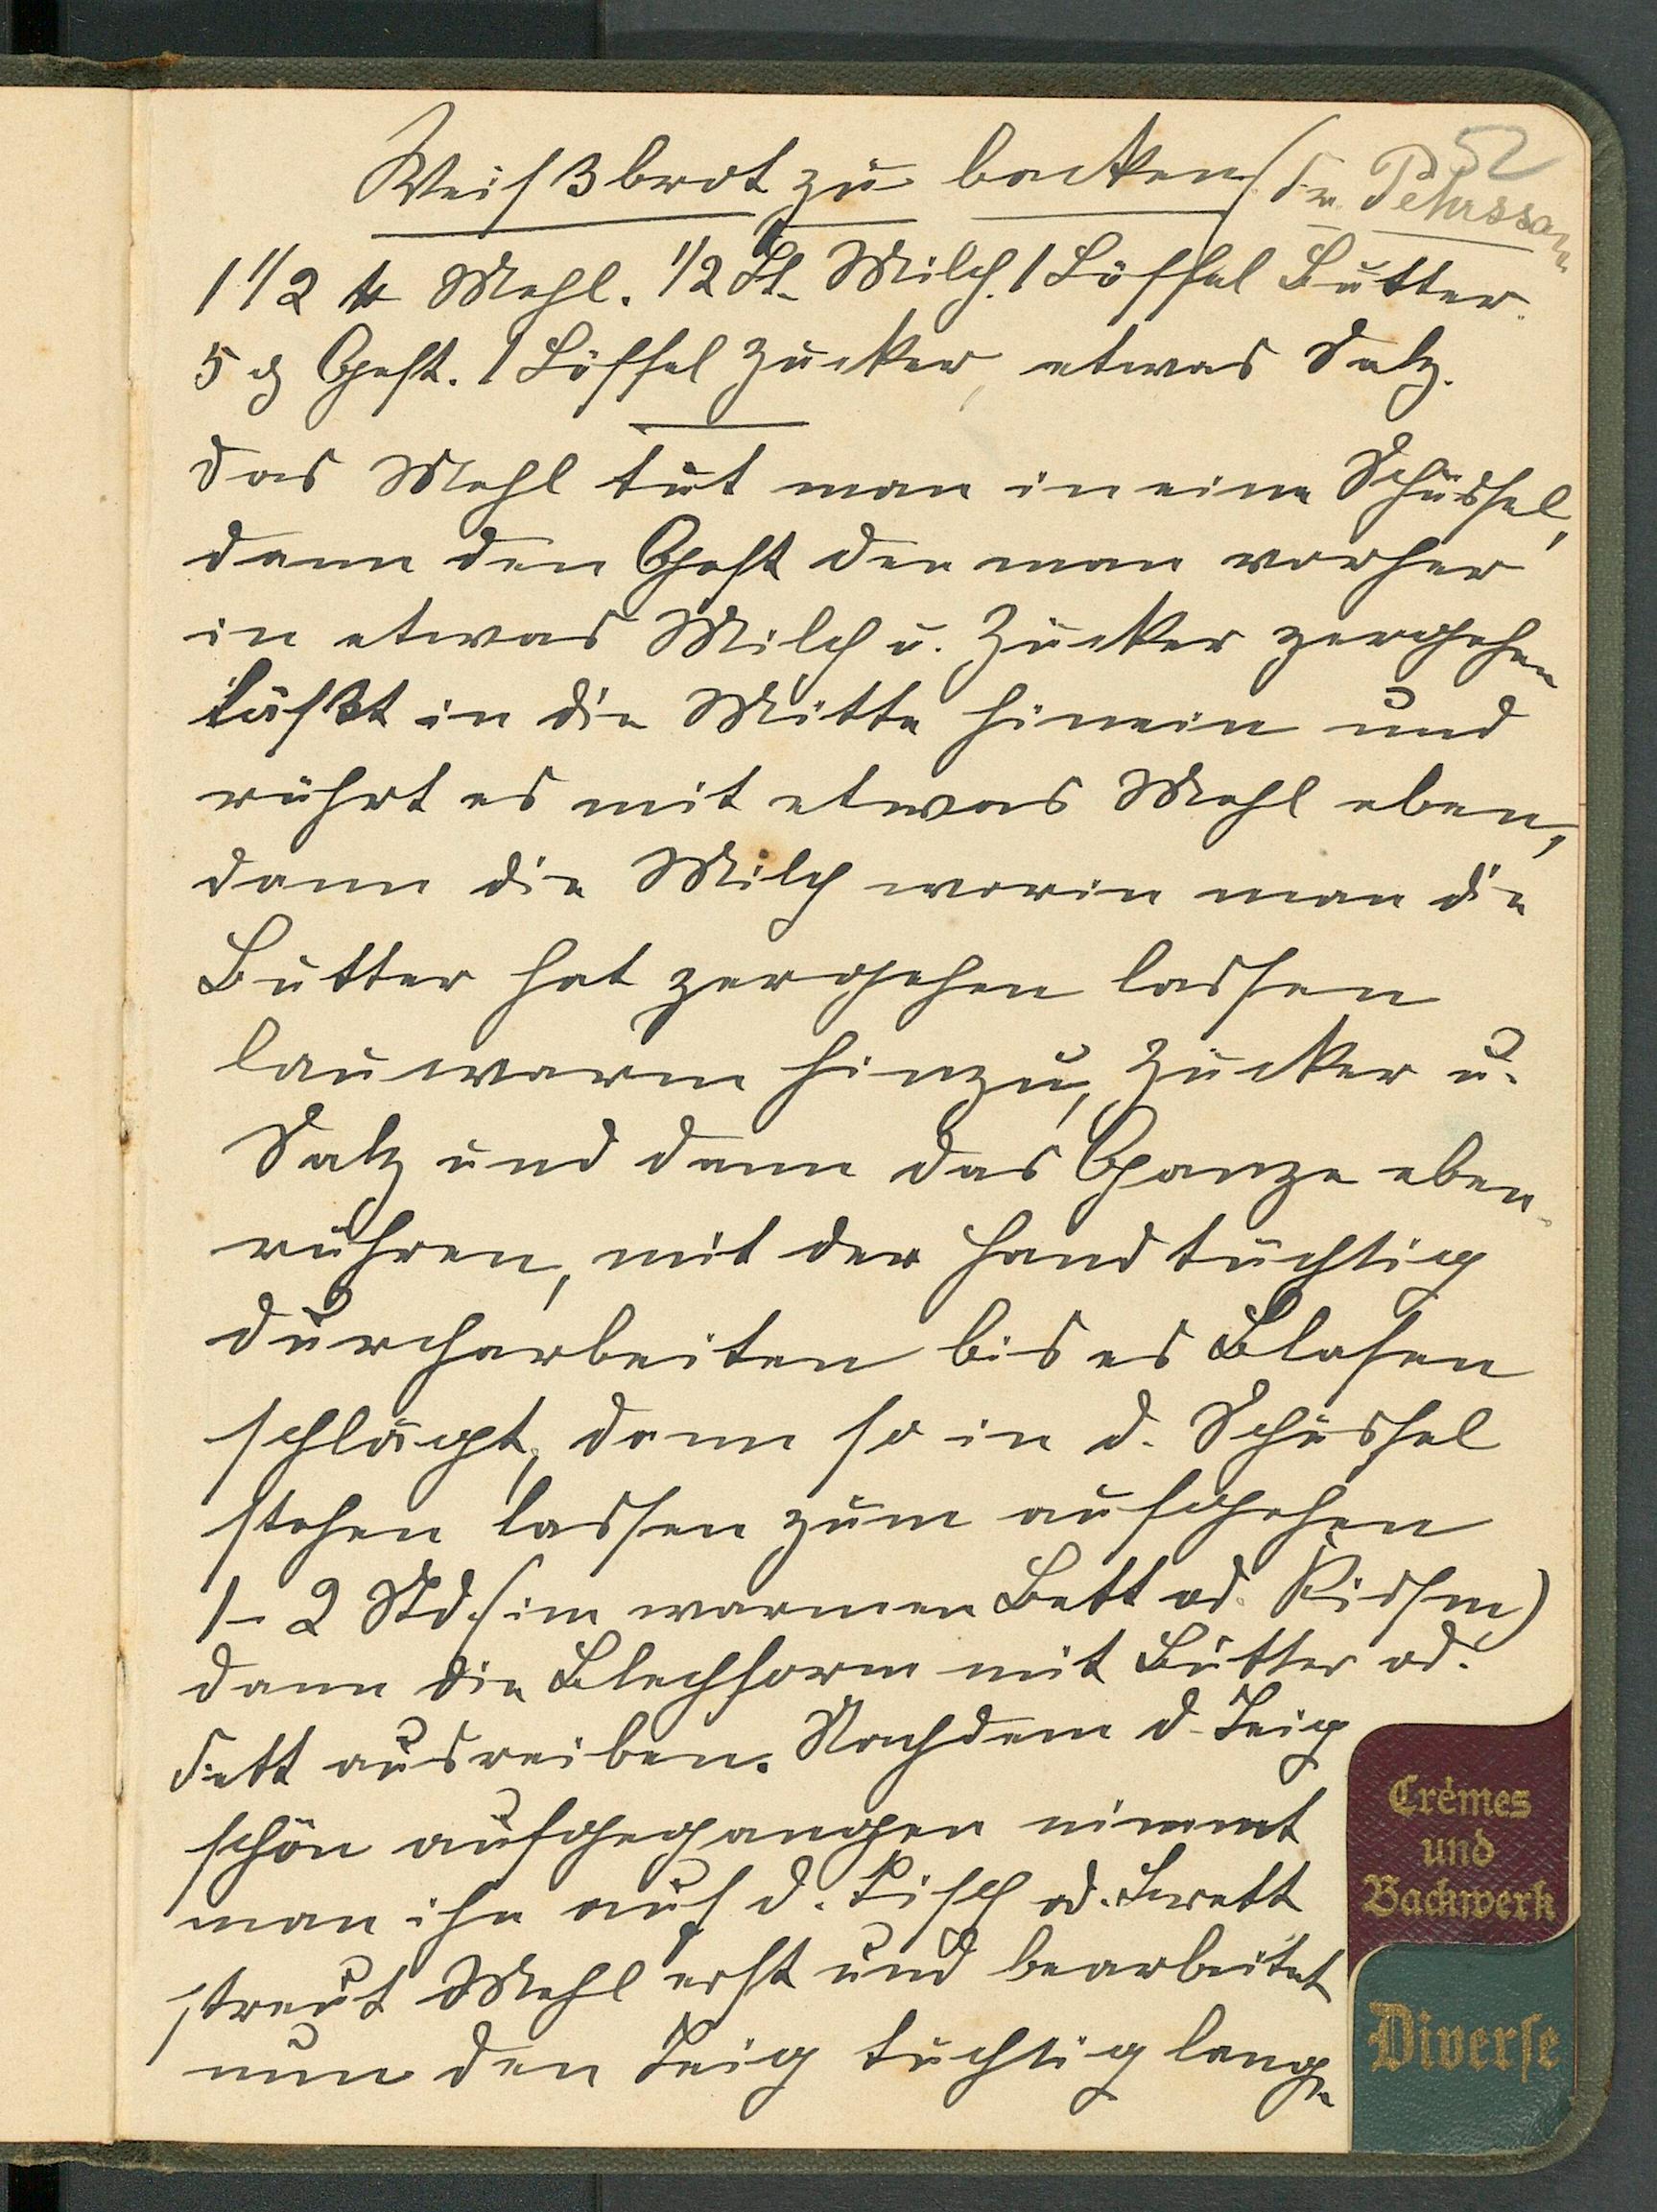 52
Weißbrot zu backen (Fr. Pehrssan
1 1/2 ℔ Mehl. 1/2 Lt. Milch. 1 Löffel Butter.
5 g Gest. 1 Löffel Zucker, etwas Salz.
das Mehl tut man in eine Schüssel,
dann den Gest den man vorher
in etwas Milch u. Zucker zergehen
läßt in die Mitte hinein und
rührt es mit etwas Mehl eben,
dann die Milch worin man die
Butter hat zergehen lassen
lauwarm hinzu, Zucker u.
Salz und dann das Ganze eben
rühren, mit der Hand tüchtig
durcharbeiten bis es Blasen
schlägt, dann so in d. Schüssel
stehen lassen zum aufgehen
1-2 Std. (im warmen Bett od. Kissen)
dann die Blechform mit Butter od.
Fett ausreiben. Nachdem d. Teig
schön aufgegangen nimmt
man ihn auf d. Tisch od. Brett
streut Mehl erst und bearbeitet
nun den Teig tüchtig lange
Crèmes
und
Backwerk
Diverse